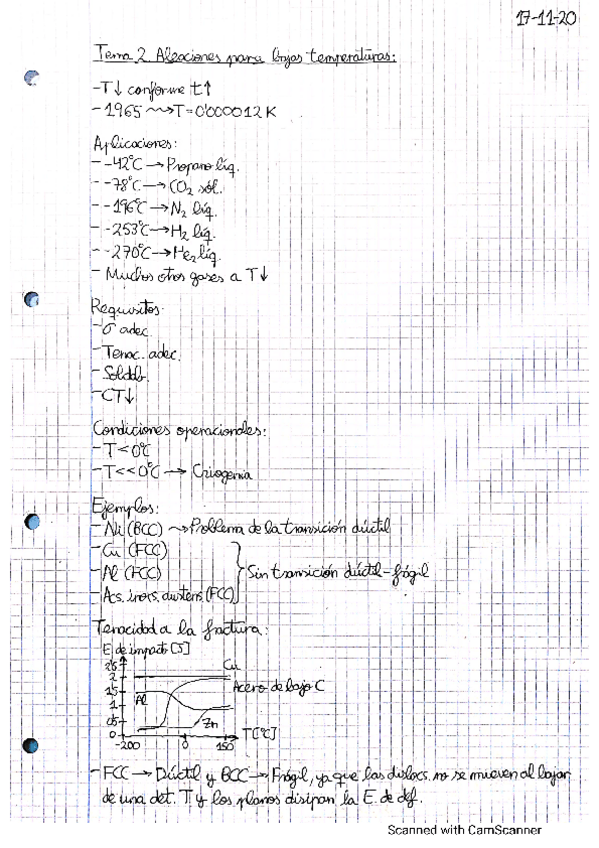 17-11-20
Tema 2. Aleaciones para bajas temperaturas:
-T↓ conforme t↑
-1965 ⇝T=0'000012 K
Aplicaciones:
- -42°C → Propano líq.
- -78°C → CO2 sól.
- -196°C → N2 líq.
- -253°C → H2 líq.
- -270°C → He2 líq.
- Muchos otros gases a T↓
Requisitos:
-σ adec.
-Tenac. adec.
-Soldab.
-CT↓
Condiciones operacionales:
-T<0°C
-T<<0°C → Criogenia
Ejemplos:
-Ni (BCC) ⇝ Problema de la transición dúctil
-Cu (FCC)
-Al (FCC)
-Acs. inoxs. austens. (FCC)
Sin transición dúctil-frágil
Tenacidad a la fractura:
E de impacto [J]
2'5
2
1'5
1
0'5
0
Cu
Acero de bajo C
Al
Zn
T[°C]
-200 0 150
-FCC → Dúctil y BCC → Frágil, ya que las dislocs. no se mueven al bajar
de una det. T y los planos disipan la E. de def.
Scanned with CamScanner